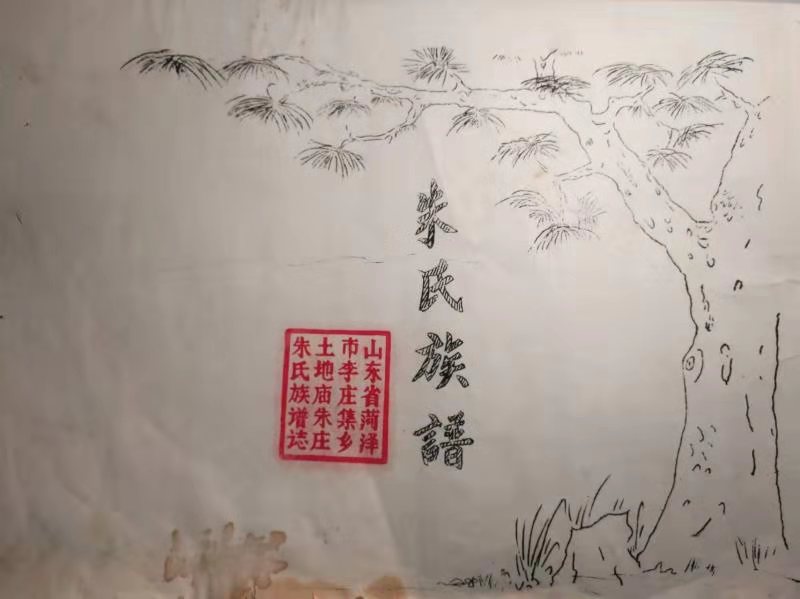 朱氏族譜
山东省菏泽
市李庄集乡
土地庙朱庄
朱氏族谱志